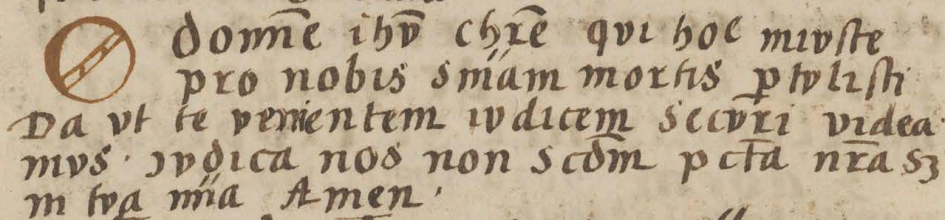 O domne ihu chre qui hoc iniuste
pro nobis sniam mortis ptulisti
Da ut te venientem iudicem securi videa
mus · iudica nos non scdm pcta nra sʒ
in tua mia Amen ·